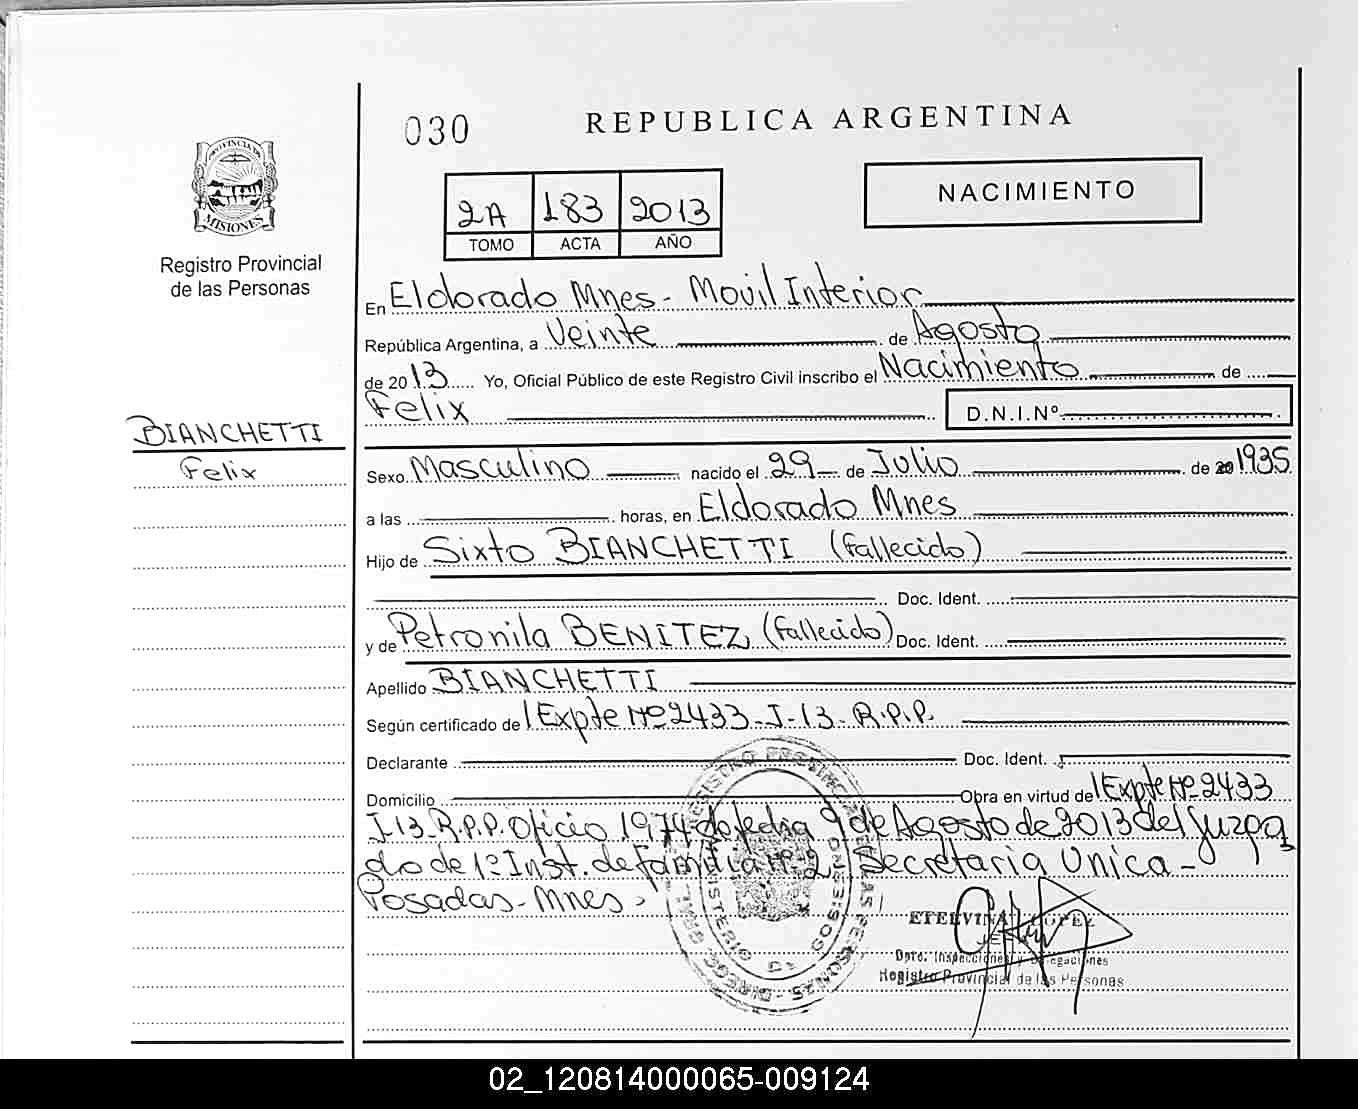 030
REPUBLICA ARGENTINA
PROVINCIA DE
MISIONES
Registro Provincial
de las Personas
2A 183 2013
TOMO ACTA AÑO
NACIMIENTO
En Eldorado Mnes- Movil Interior
República Argentina, a Veinte de Agosto
de 2013 Yo, Oficial Público de este Registro Civil inscribo el Nacimiento de
Felix D.N.I.Nº
BIANCHETTI
Felix
Sexo Masculino nacido el 29 de Julio de 20 1935
a las horas, en Eldorado Mnes
Hijo de Sixto BIANCHETTI (Fallecido)
Doc. Ident.
y de Petronila BENITEZ (Fallecido) Doc. Ident.
Apellido BIANCHETTI
Según certificado de Expte Nº 2433-I-13-R.P.P.
Declarante Doc. Ident.
Domicilio Obra en virtud de Expte Nº 2433
I-13-R.P.P. Oficio 1974 de fecha 9 de Agosto de 2013 del Juzga
do de 1º Inst. de Familia Nº 2 Secretaria Unica-
Posadas-Mnes-
ETELVINA LOPEZ
JEFE
Dpto. Inspecciones y Delegaciones
Registro Provincial de las Personas
02_120814000065-009124